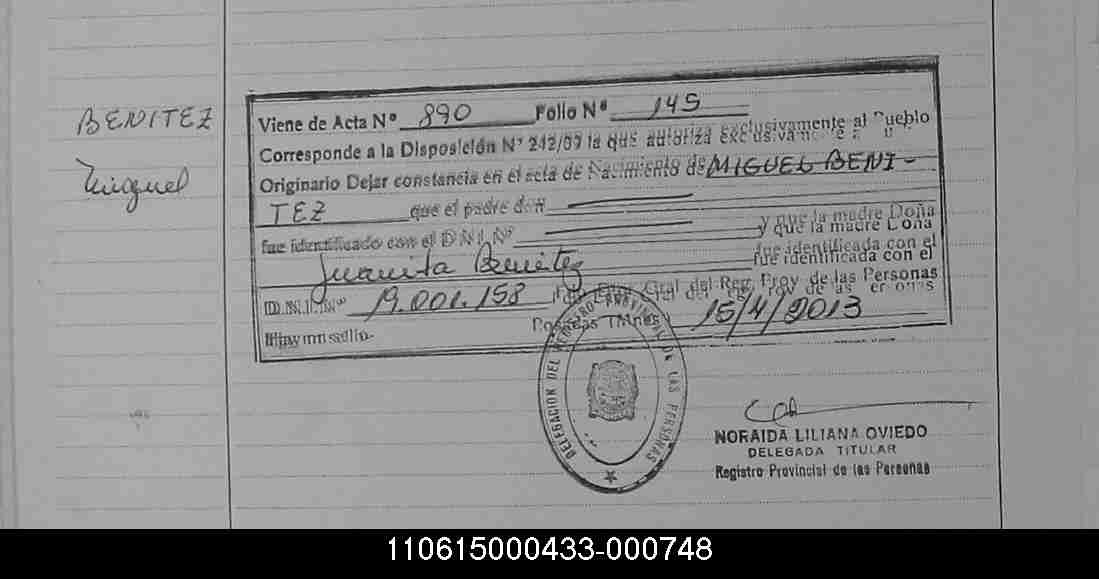 BENITEZ
Miguel
Viene de Acta Nº 890 Folio Nº 145
Corresponde a la Disposición Nº 242/09 la que autoriza exclusivamente al Pueblo
Originario Dejar constancia en el acta de Nacimiento de MIGUEL BENI-
TEZ que el padre don
fue identificado con el D.N.I. Nº y que la madre Doña
Juanita Benitez fue identificada con el
D.N.I. Nº 19.001.158 Gral del Reg. Prov. de las Personas
Posadas 15/4/2013
Hay un sello-
DELEGACION DEL REGISTRO PROVINCIAL DE LAS PERSONAS
NORAIDA LILIANA OVIEDO
DELEGADA TITULAR
Registro Provincial de las Personas
110615000433-000748